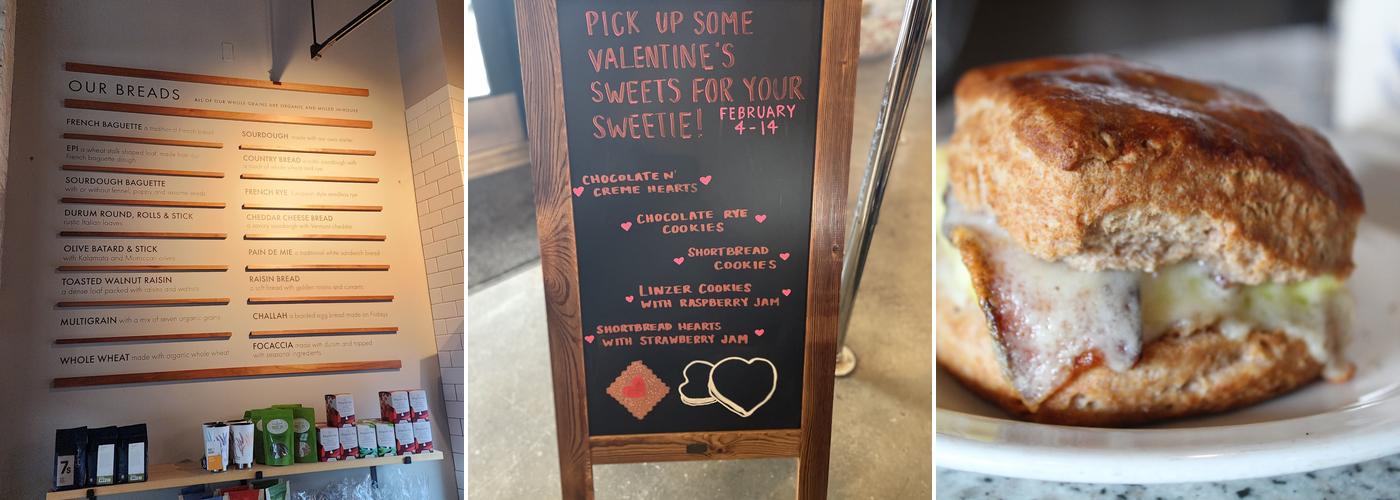 OUR BREADS ALL OF OUR WHOLE GRAINS ARE ORGANIC AND MILLED IN-HOUSE
FRENCH BAGUETTE a traditional French bread
EPI a wheat stalk shaped loaf, made from our
French baguette dough
SOURDOUGH BAGUETTE
with or without fennel, poppy and sesame seeds
DURUM ROUND, ROLLS & STICK
rustic Italian loaves
OLIVE BATARD & STICK
with Kalamata and Moroccan olives
TOASTED WALNUT RAISIN
a dense loaf packed with raisins and walnuts
MULTIGRAIN with a mix of seven organic grains
WHOLE WHEAT made with organic whole wheat
SOURDOUGH made with our own starter
COUNTRY BREAD a rustic sourdough with
a touch of whole wheat and rye
FRENCH RYE European style seedless rye
CHEDDAR CHEESE BREAD
a savory sourdough with Vermont cheddar
PAIN DE MIE a traditional white sandwich bread
RAISIN BREAD
a soft bread with golden raisins and currants
CHALLAH a braided egg bread made on Fridays
FOCACCIA made with durum and topped
with seasonal ingredients
7s
PICK UP SOME
VALENTINE'S
SWEETS FOR YOUR
SWEETIE! FEBRUARY
4-14
CHOCOLATE N'
CREME HEARTS
CHOCOLATE RYE
COOKIES
SHORTBREAD
COOKIES
LINZER COOKIES
WITH RASPBERRY JAM
SHORTBREAD HEARTS
WITH STRAWBERRY JAM